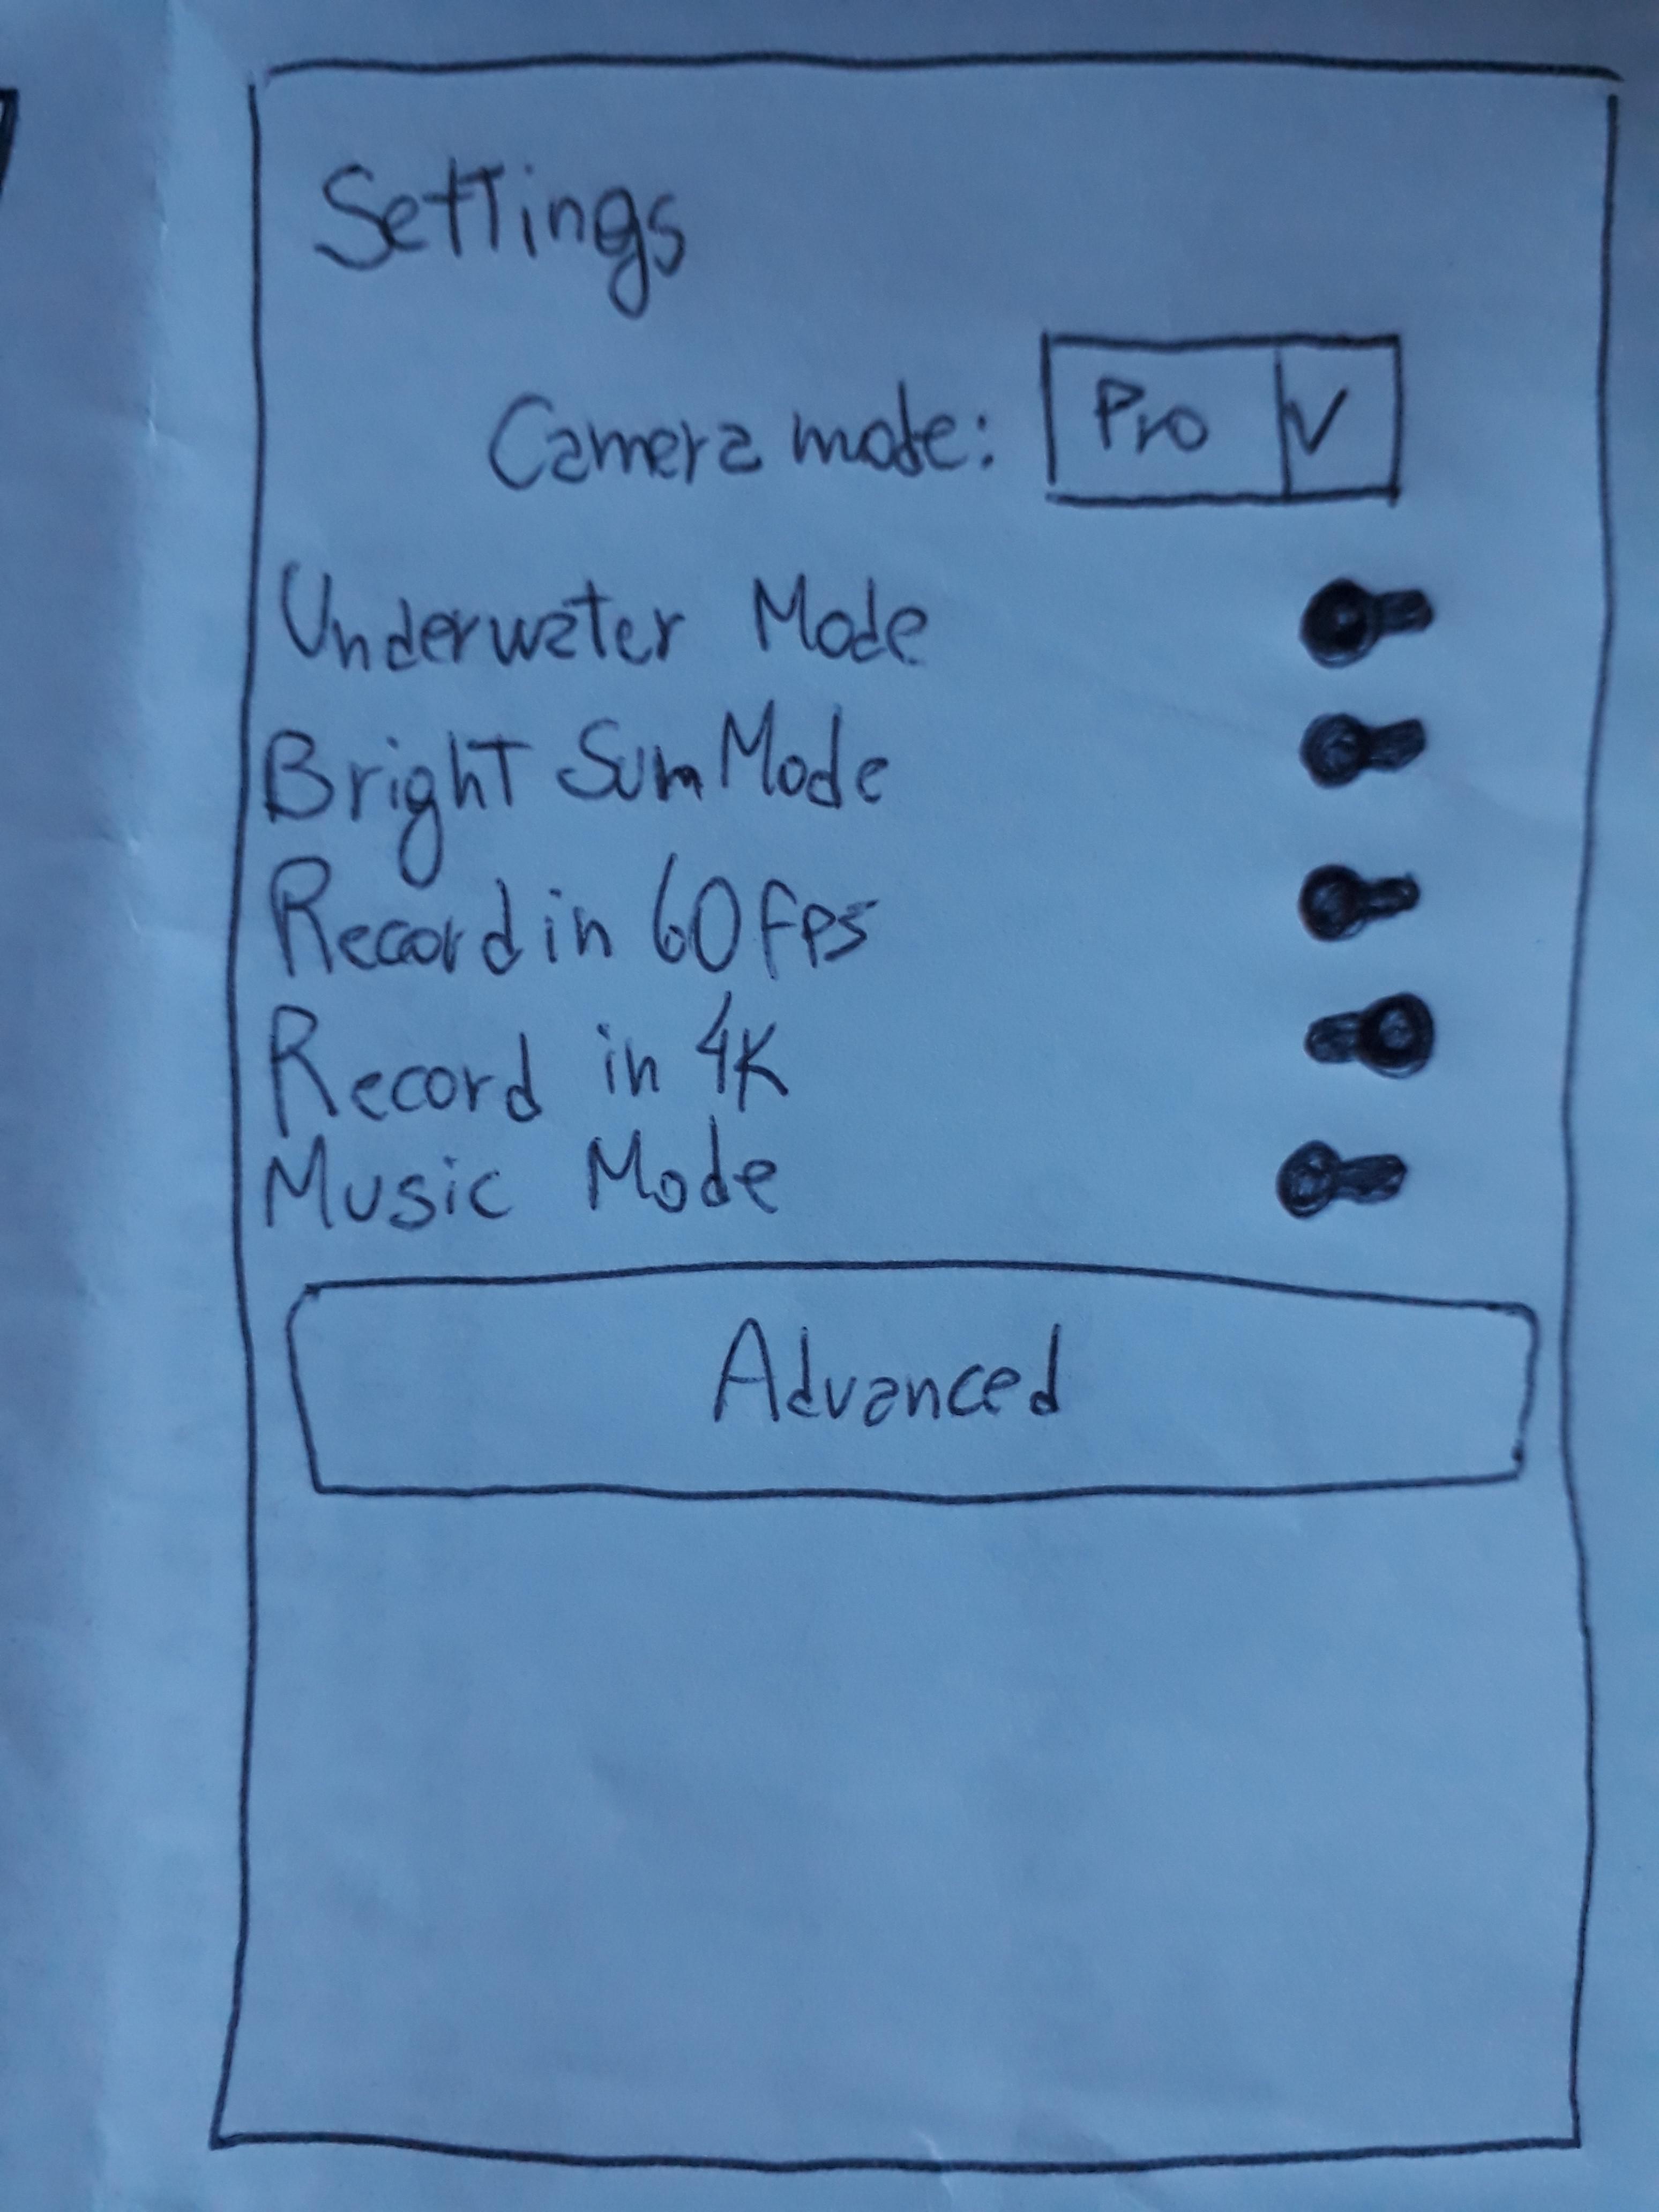 Settings
Camera mode: Pro
Underwater Mode
Bright Sun Mode
Record in 60 fps
Record in 4K
Music Mode
Advanced